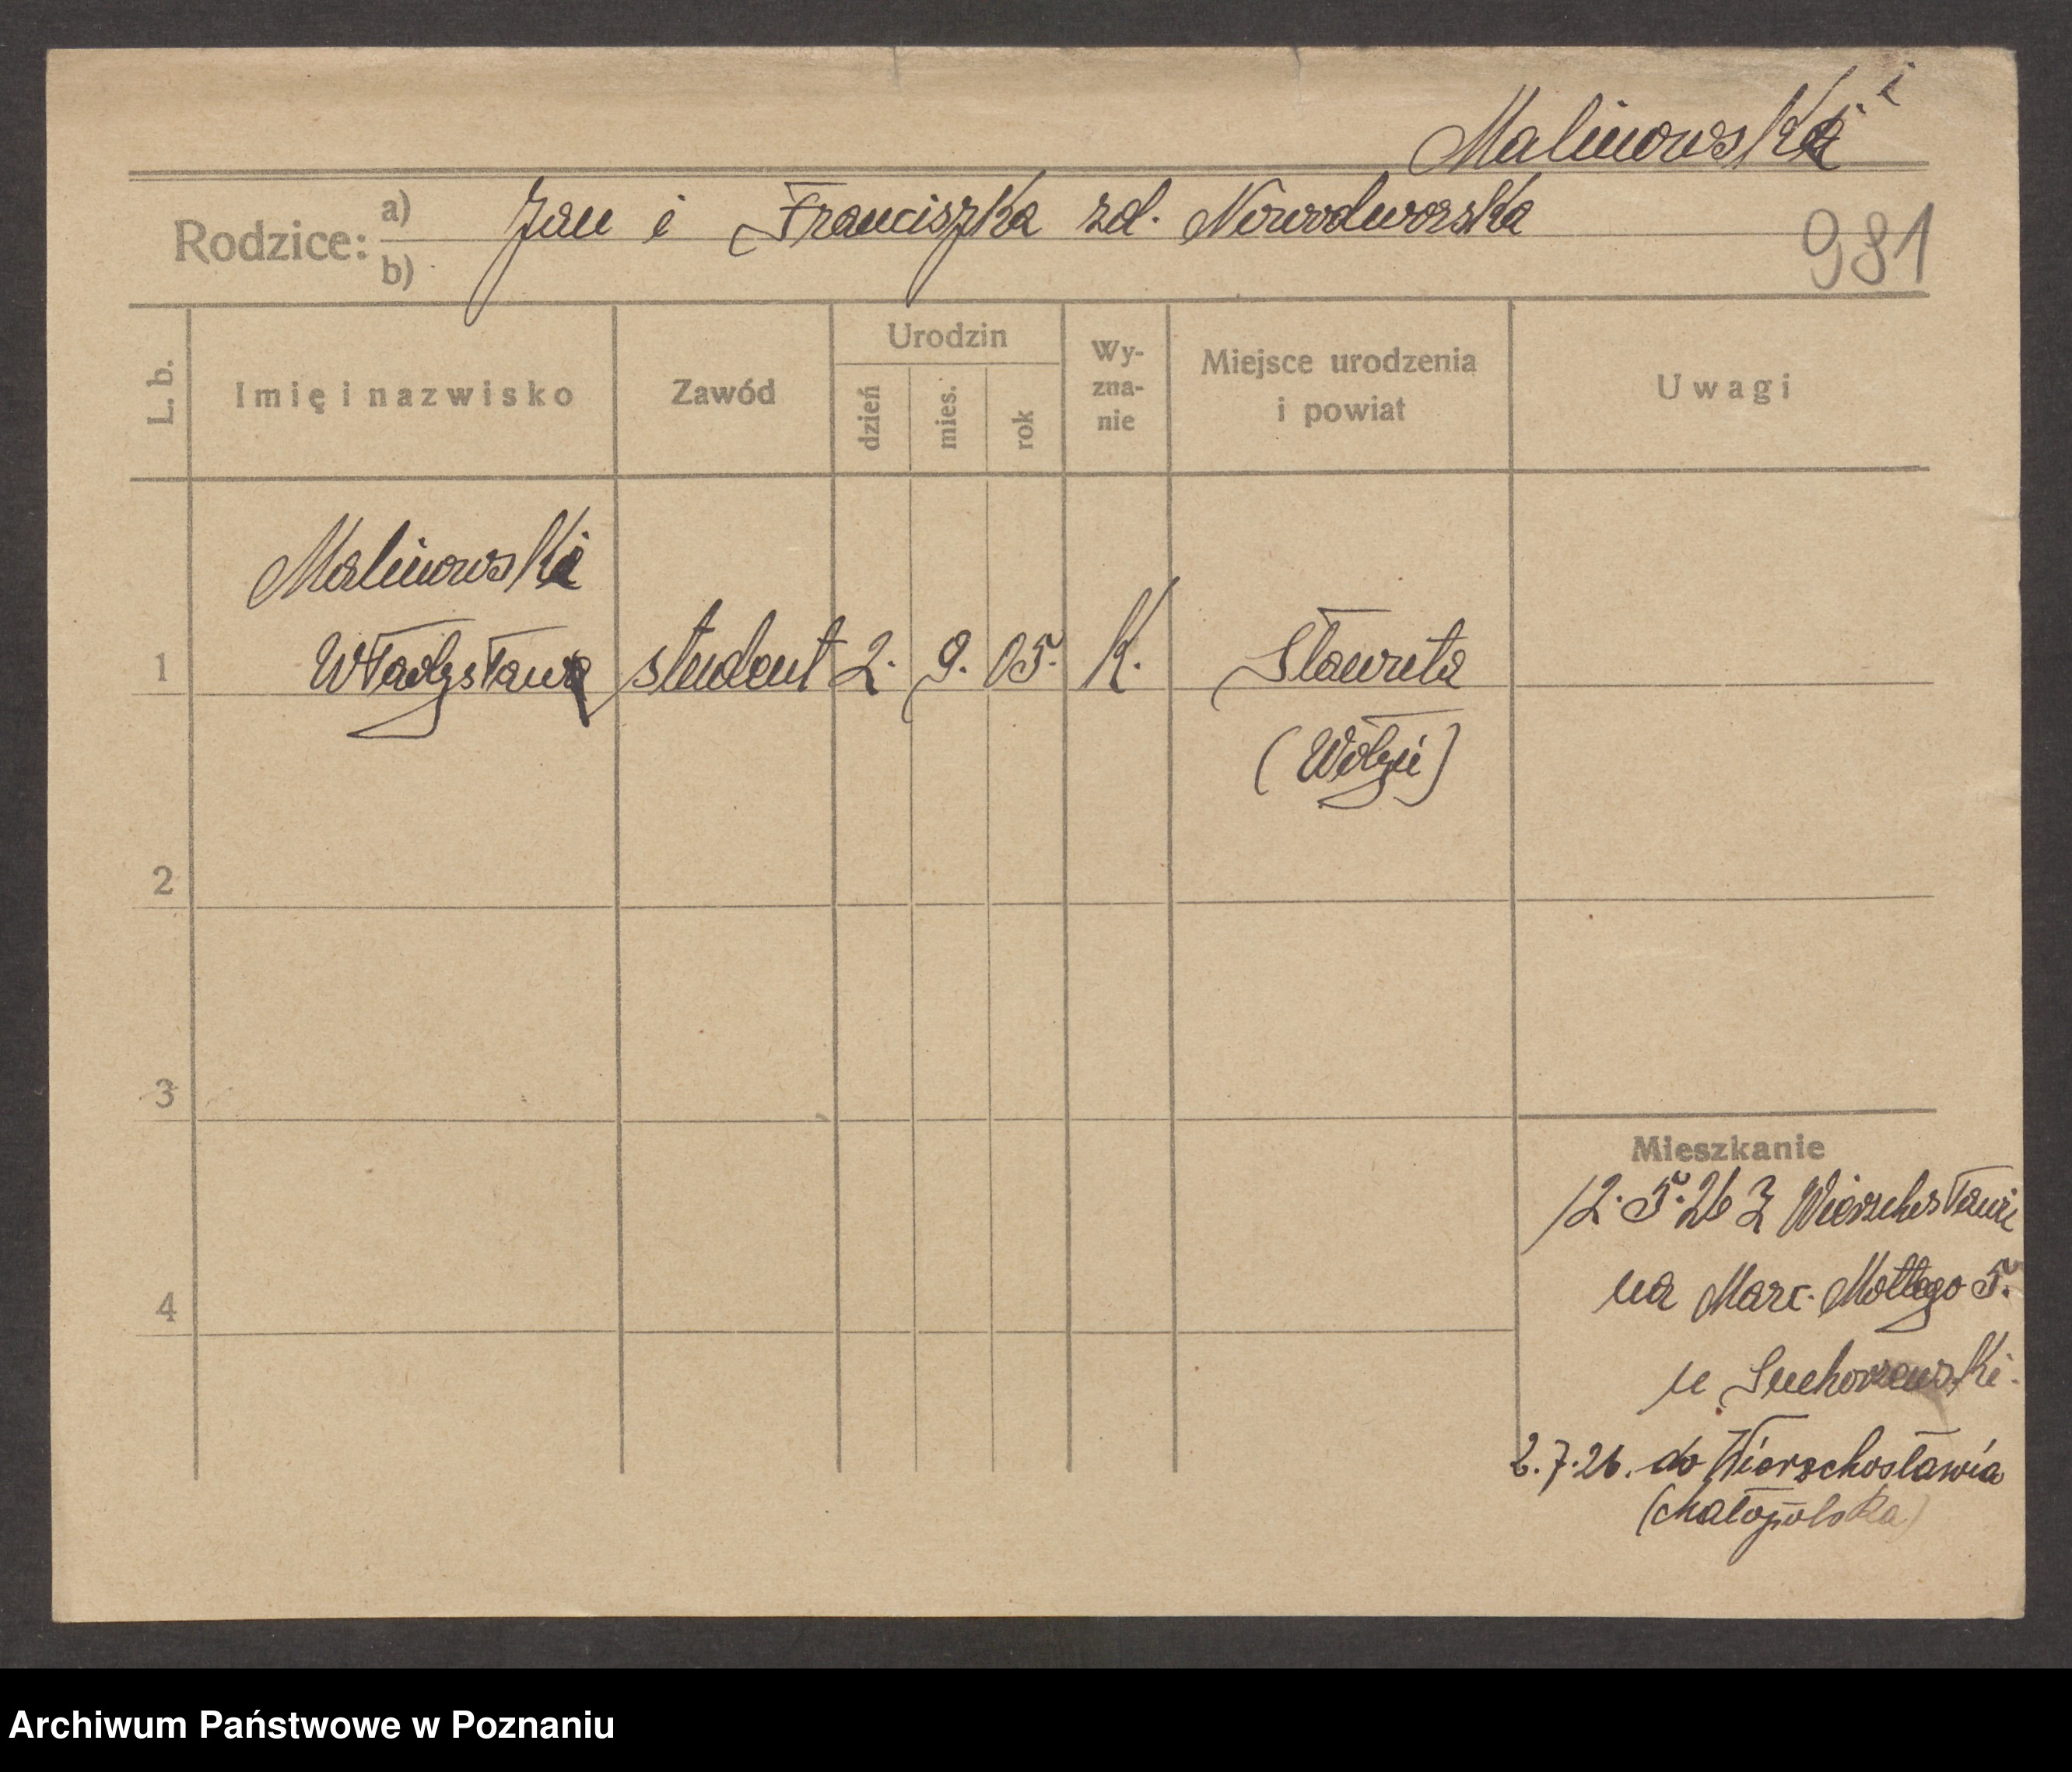 Malinowski i
Rodzice: a) Jan i Franciszka zd. Nowodworska
b)
981
L. b.
Imię i nazwisko
Zawód
Urodzin
dzień
mies.
rok
Wy-
zna-
nie
Miejsce urodzenia
i powiat
Uwagi
Malinowski
1 Władysław student 2. 9. 05. K. Sławuta
(Wołyń)
2
3
4
Mieszkanie
12.5.26 z
na Marc. Mottego 5.
u Suchorzewski.
2.7.26. do Wierzchosławia
(Małopolska)
Archiwum Państwowe w Poznaniu